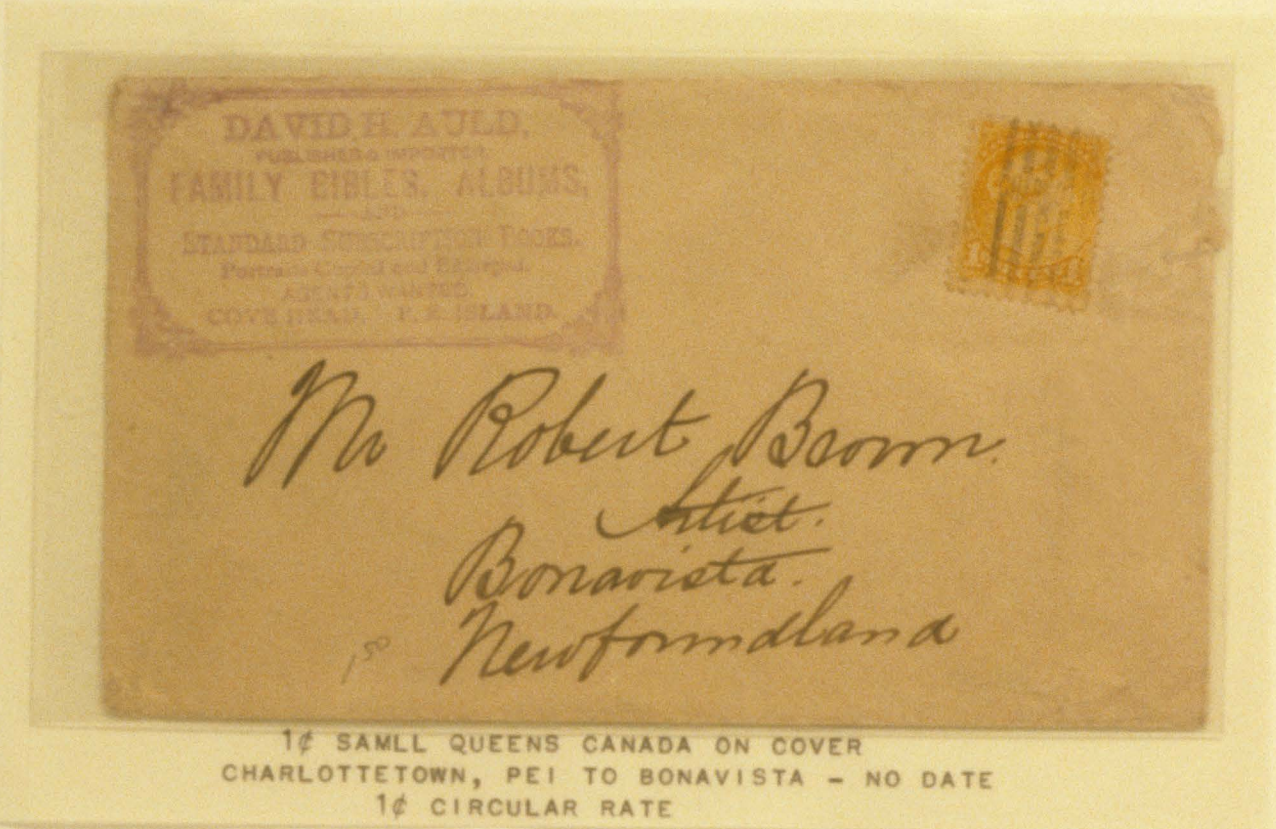 DAVID H. AULD,
PUBLISHER & IMPORTER
FAMILY BIBLES, ALBUMS,
AND
STANDARD SUBSCRIPTION BOOKS.
Portraits Copied and Enlarged.
AGENTS WANTED.
COVE HEAD, P. E. ISLAND.
1 1
Mr Robert Brown.
Artist.
Bonavista.
Newfoundland
1 50
1¢ SAMLL QUEENS CANADA ON COVER
CHARLOTTETOWN, PEI TO BONAVISTA - NO DATE
1¢ CIRCULAR RATE